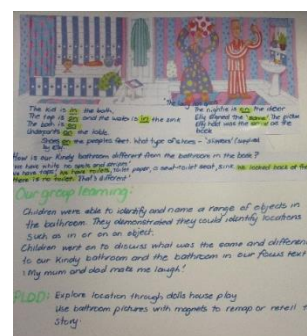 The kid is in the bath
The tap is on and the water is in the sink
The bath is
Underpants on the table
on the peoples feet. What type of shoes - 'slippers'
The nightie is on the door
Elly the 'same'. The picture
Elly held was the on the
book
How is our Kindy bathroom different from the bathroom in the book?
We have white no spots and
We have taps, we have toilets, toilet paper, a seat, sink, We looked back at the
there is no toilet. That's different
Our group learning:
Children were able to identify and name a range of objects in
the bathroom. They demonstrated they could identify locations
such as in or on an object.
Children went on to discuss what was the same and different
to our Kindy bathroom and the bathroom in our focus text
"My mum and dad make me laugh!
PLOD: Explore location through dolls house play
Use bathroom pictures with magnets to remap or retell
story.